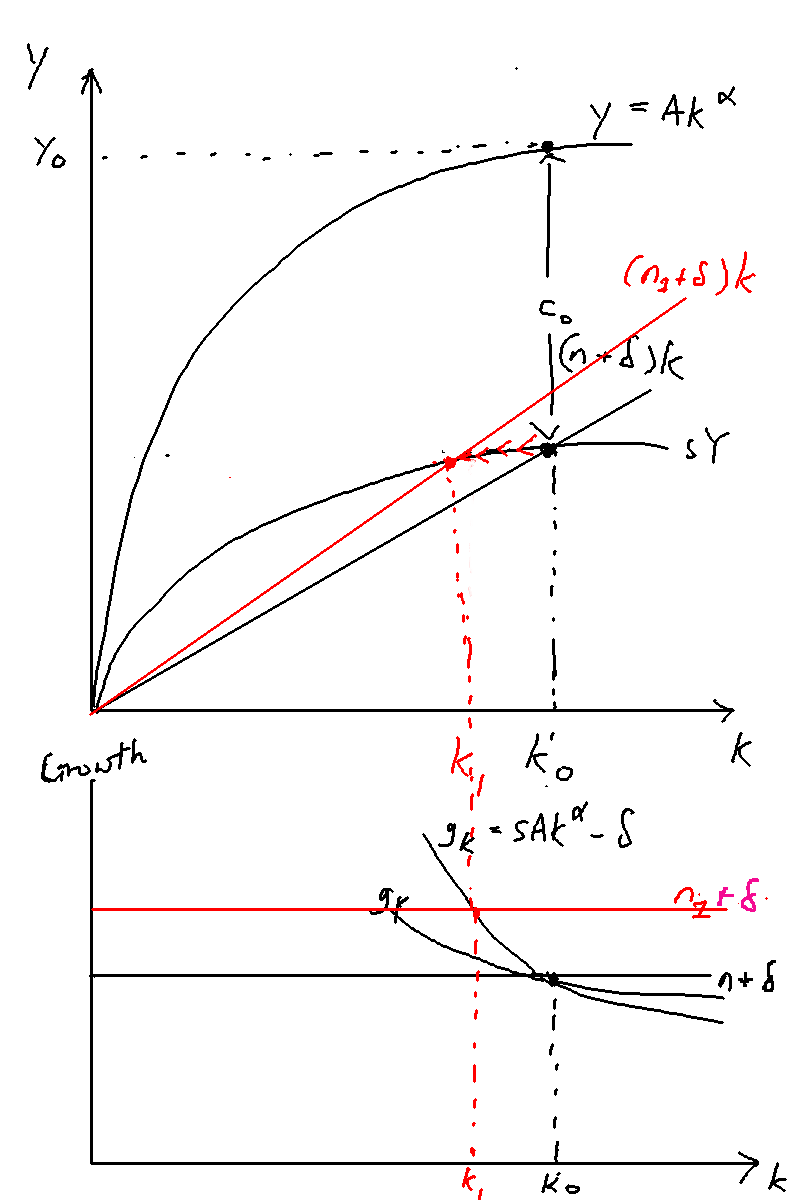 y
y = Ak^α
y₀
(n₁+δ)k
c₀
(n+δ)k
sY
k₁
k₀
k
Growth
g_k = sAk^α - δ
g_y
n₁+δ
n+δ
k₁
k₀
k